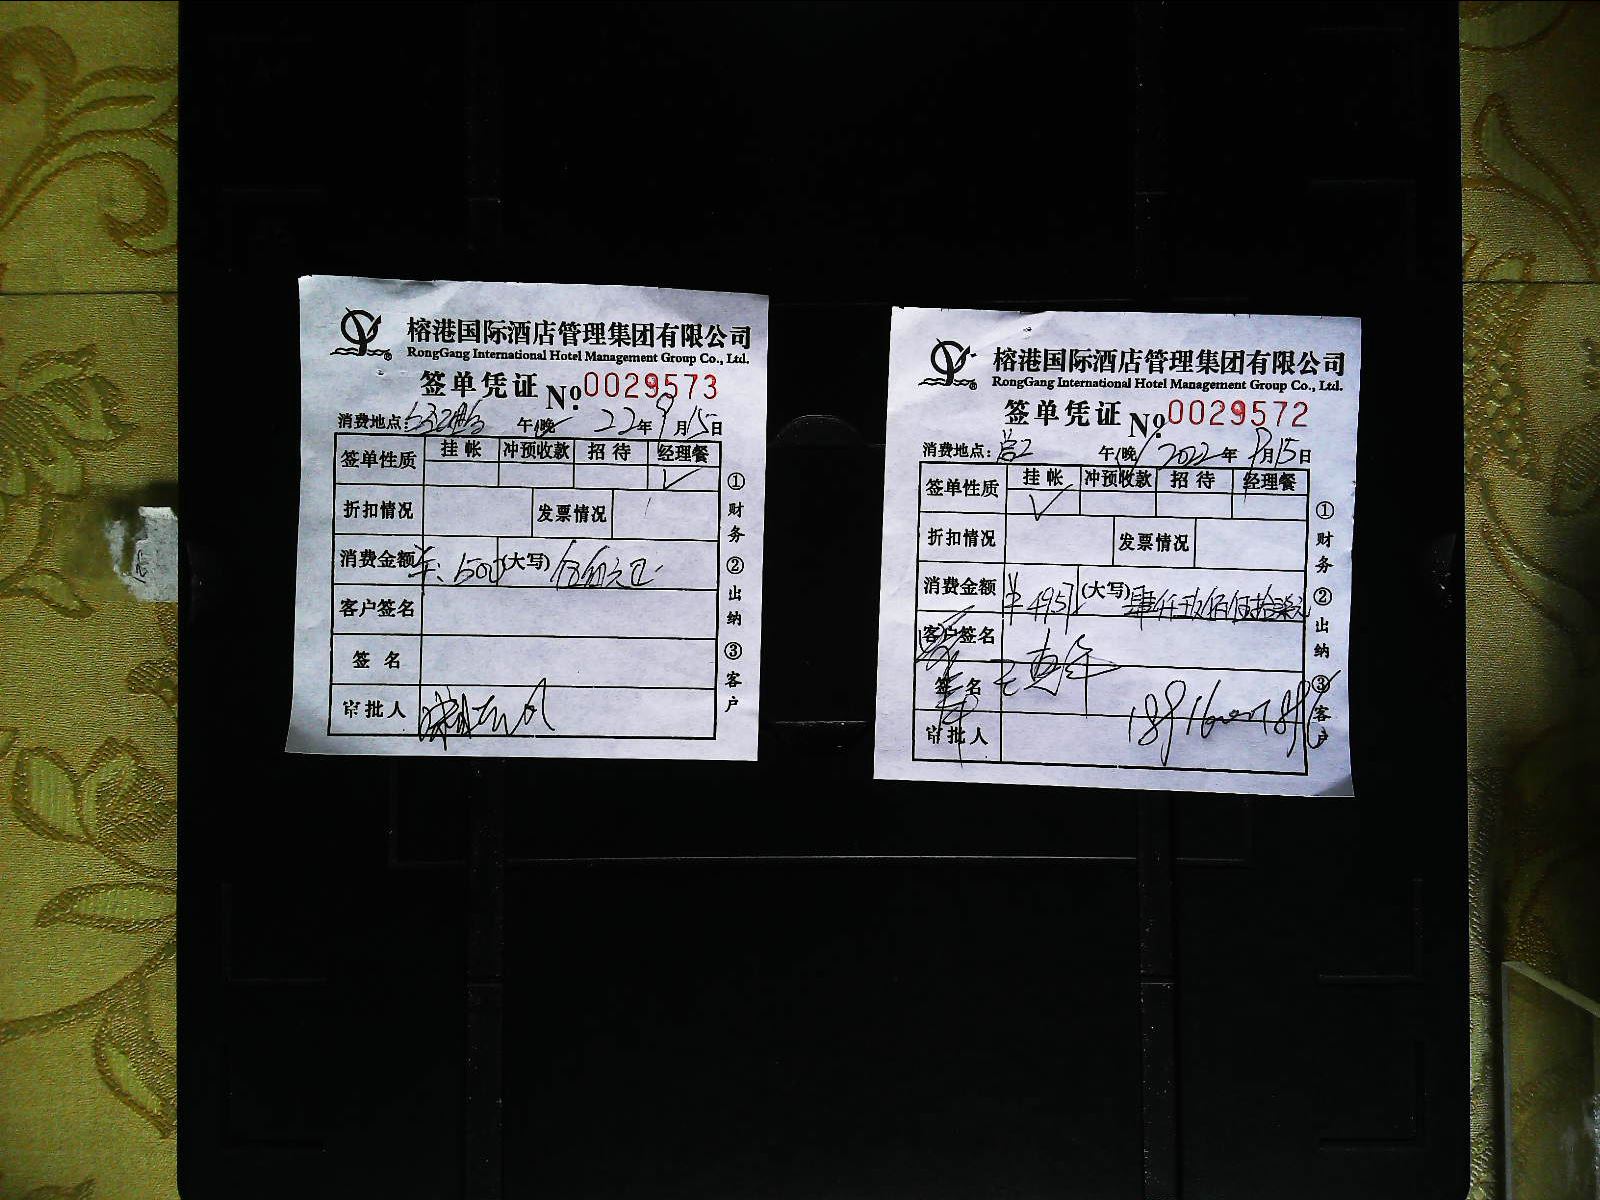 榕港国际酒店管理集团有限公司
RongGang International Hotel Management Group Co., Ltd.
签单凭证 No.0029573
消费地点: 午/晚 22年9月15日
签单性质 挂帐 冲预收款 招待 经理餐
✓
折扣情况 发票情况
消费金额 ¥:500 (大写) 伍佰元正
客户签名
签名
审批人
①财务 ②出纳 ③客户
榕港国际酒店管理集团有限公司
RongGang International Hotel Management Group Co., Ltd.
签单凭证 No.0029572
消费地点: 午/晚 2022年9月15日
签单性质 挂帐 冲预收款 招待 经理餐
✓
折扣情况 发票情况
消费金额 ¥4957 (大写) 肆仟玖佰伍拾柒元
客户签名
签名
审批人
①财务 ②出纳 ③客户